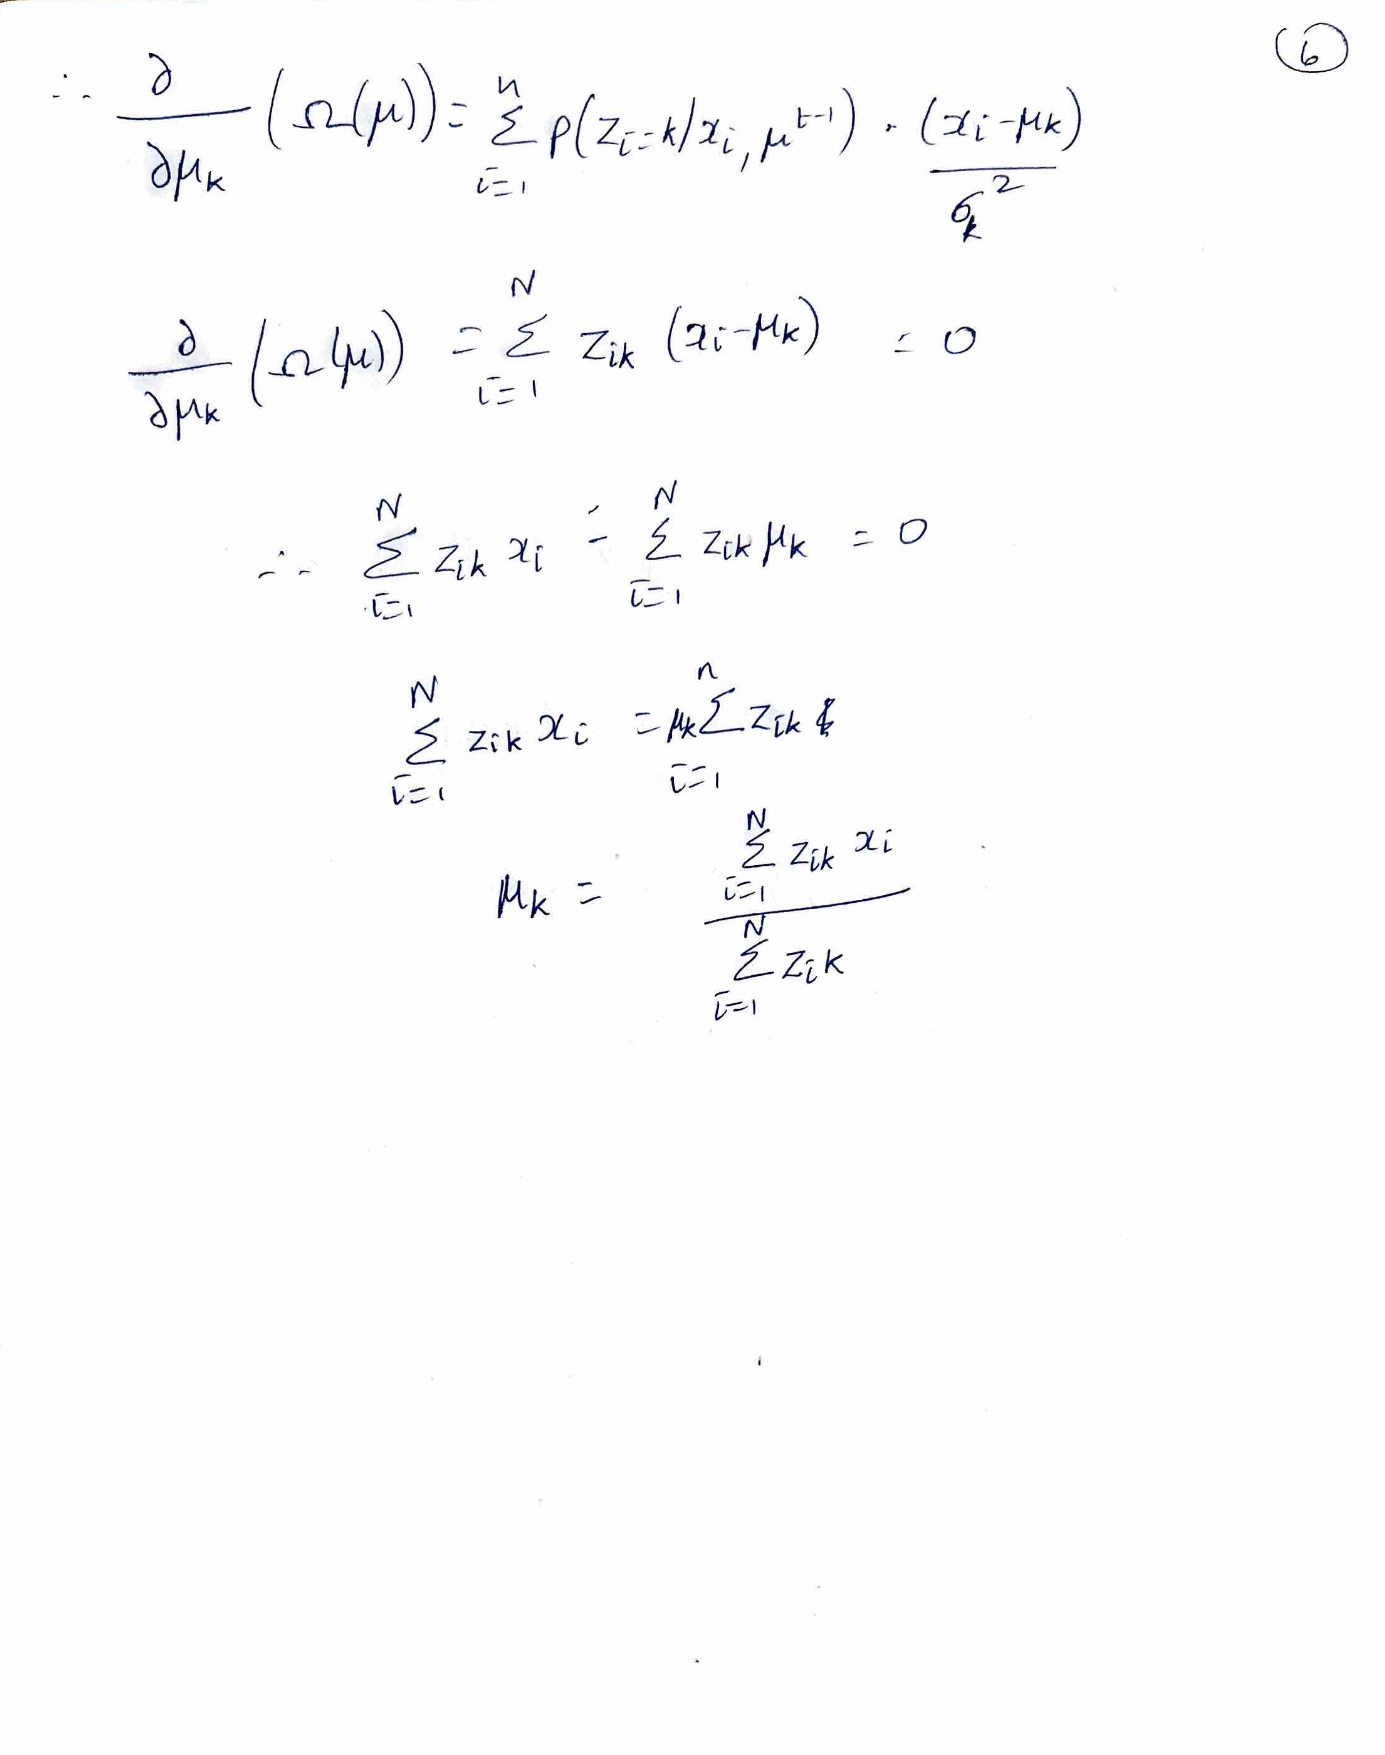 6
∴ ∂/∂μₖ (Ω(μ)) = ∑ⁿᵢ₌₁ p(zᵢ=k/xᵢ, μᵗ⁻¹) · (xᵢ-μₖ)/σₖ²
∂/∂μₖ (Ω(μ)) = ∑ᴺᵢ₌₁ zᵢₖ (xᵢ-μₖ) = 0
∴ ∑ᴺᵢ₌₁ zᵢₖ xᵢ - ∑ᴺᵢ₌₁ zᵢₖ μₖ = 0
∑ᴺᵢ₌₁ zᵢₖ xᵢ = μₖ ∑ⁿᵢ₌₁ zᵢₖ
μₖ = ∑ᴺᵢ₌₁ zᵢₖ xᵢ / ∑ᴺᵢ₌₁ zᵢₖ